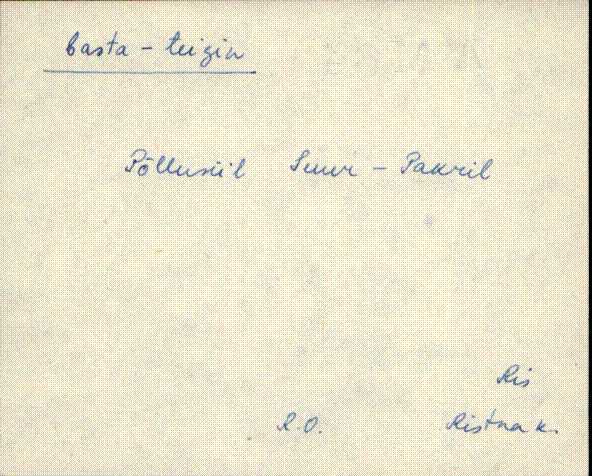 basta - teigin
Põllusiil Suur - Pakril
Ris
R.O. Ristna k.